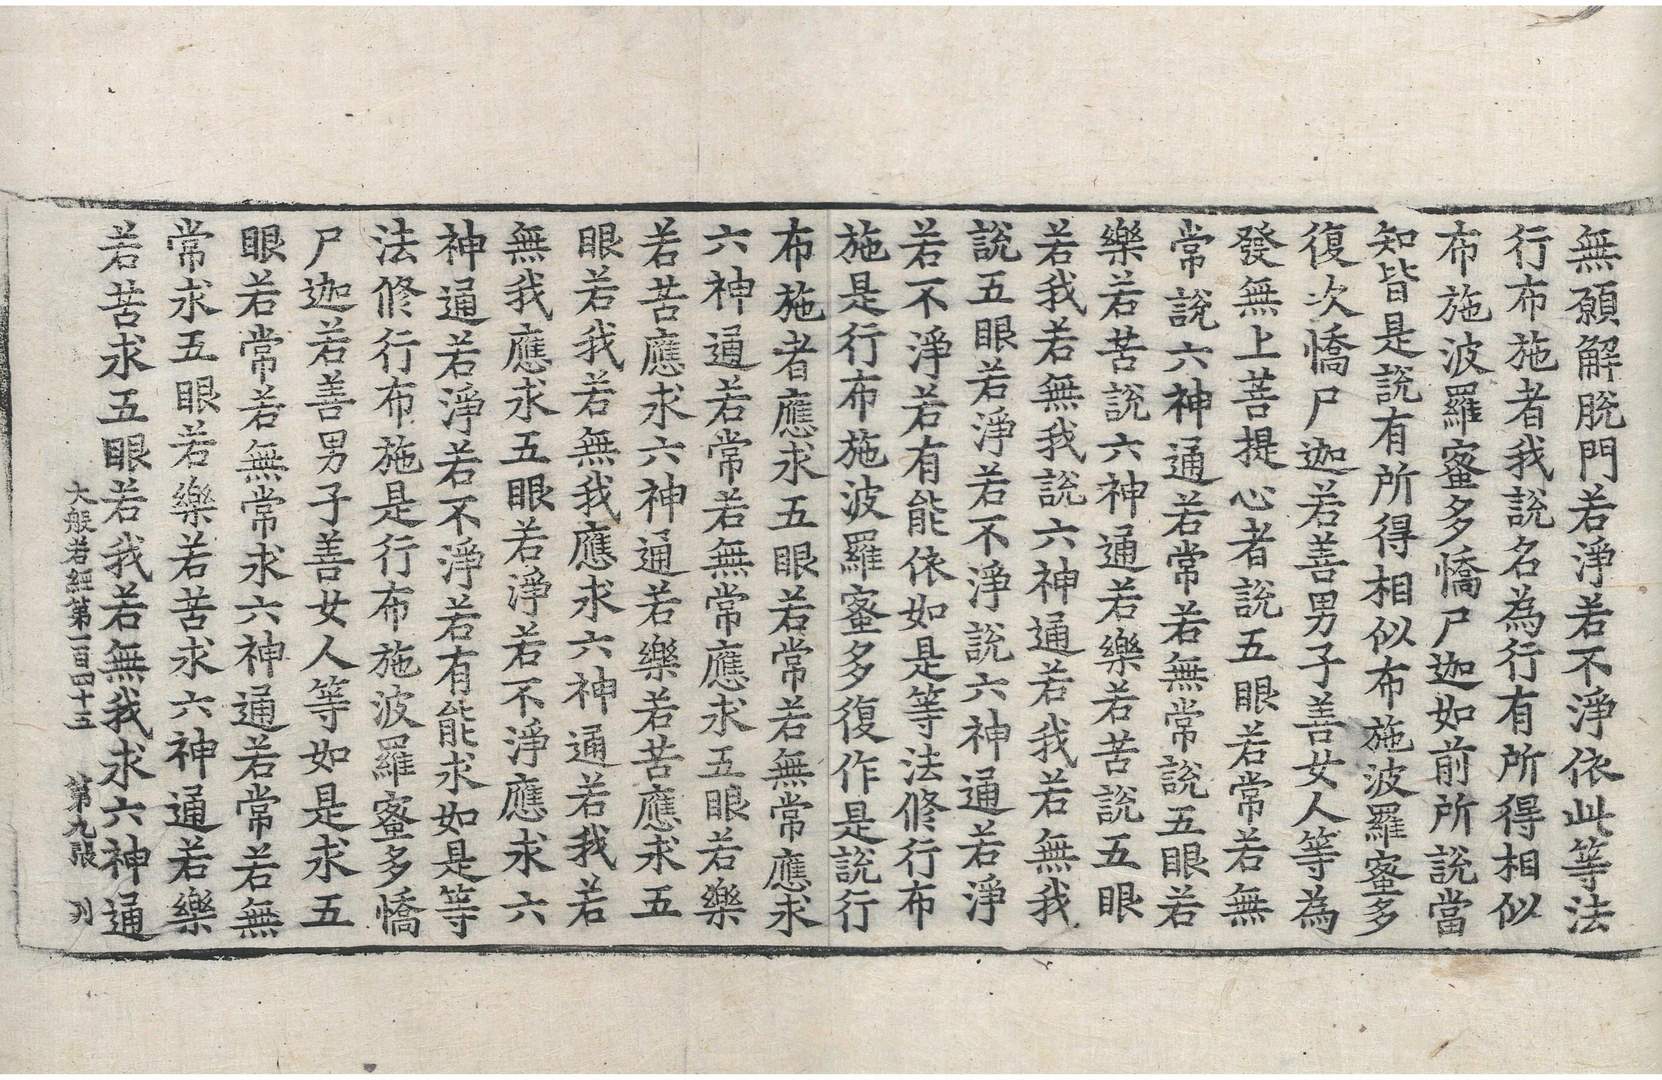 無願解脫門若淨若不淨依此等法
行布施者我說名為行有所得相似
布施波羅蜜多憍尸迦如前所說當
知皆是說有所得相似布施波羅蜜多
復次憍尸迦若善男子善女人等為
發無上菩提心者說五眼若常若無
常說六神通若常若無常說五眼若
樂若苦說六神通若樂若苦說五眼
若我若無我說六神通若我若無我
說五眼若淨若不淨說六神通若淨
若不淨若有能依如是等法修行布
施是行布施波羅蜜多復作是說行
布施者應求五眼若常若無常應求
六神通若常若無常應求五眼若樂
若苦應求六神通若樂若苦應求五
眼若我若無我應求六神通若我若
無我應求五眼若淨若不淨應求六
神通若淨若不淨若有能求如是等
法修行布施是行布施波羅蜜多憍
尸迦若善男子善女人等如是求五
眼若常若無常求六神通若常若無
常求五眼若樂若苦求六神通若樂
若苦求五眼若我若無我求六神通
大般若經第一百四十五 第九張 列